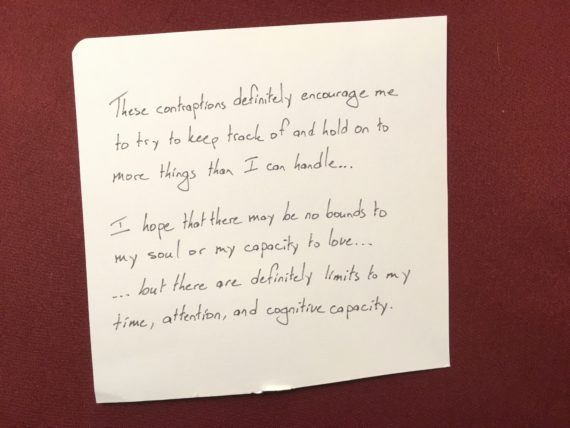 These contraptions definitely encourage me
to try to keep track of and hold on to
more things than I can handle...
I hope that there may be no bounds to
my soul or my capacity to love...
... but there are definitely limits to my
time, attention, and cognitive capacity.